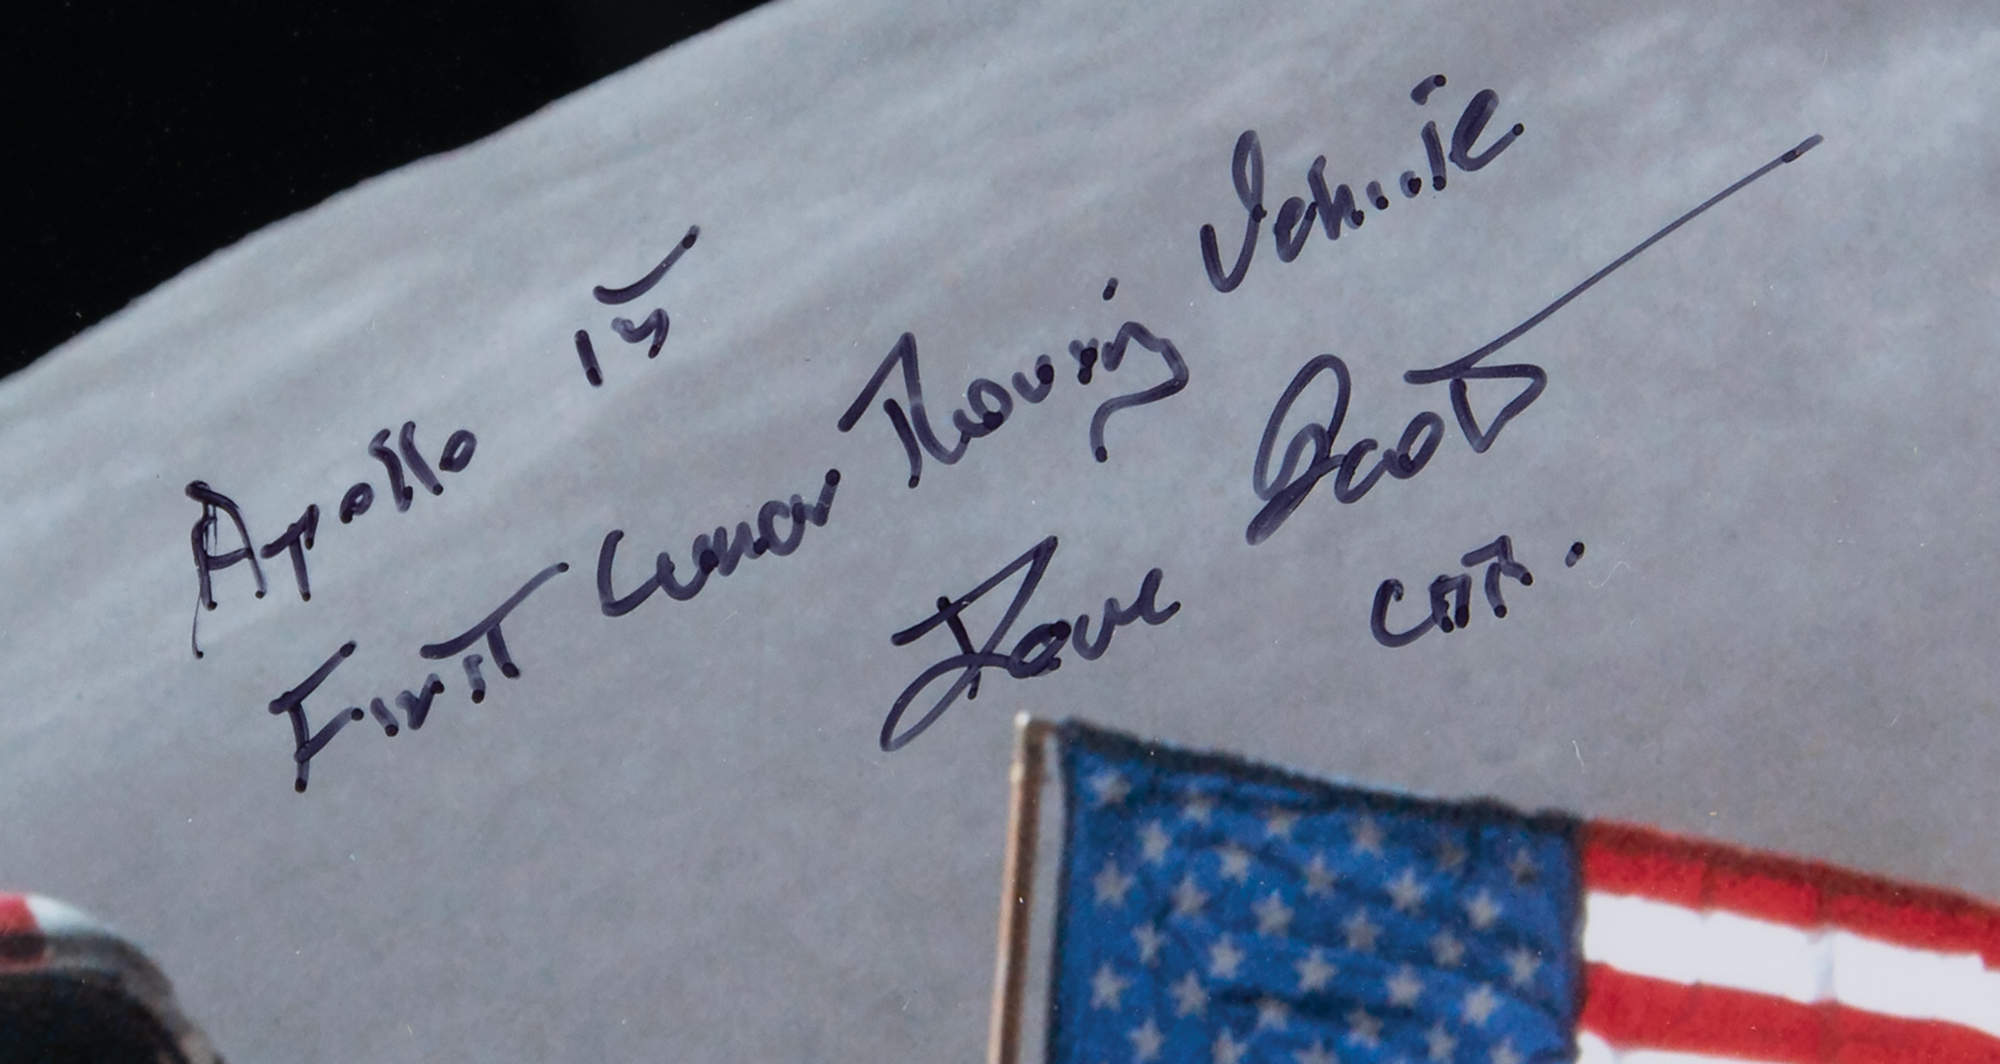 Apollo 15
First Lunar Roving Vehicle
Dave Scott
CDR.